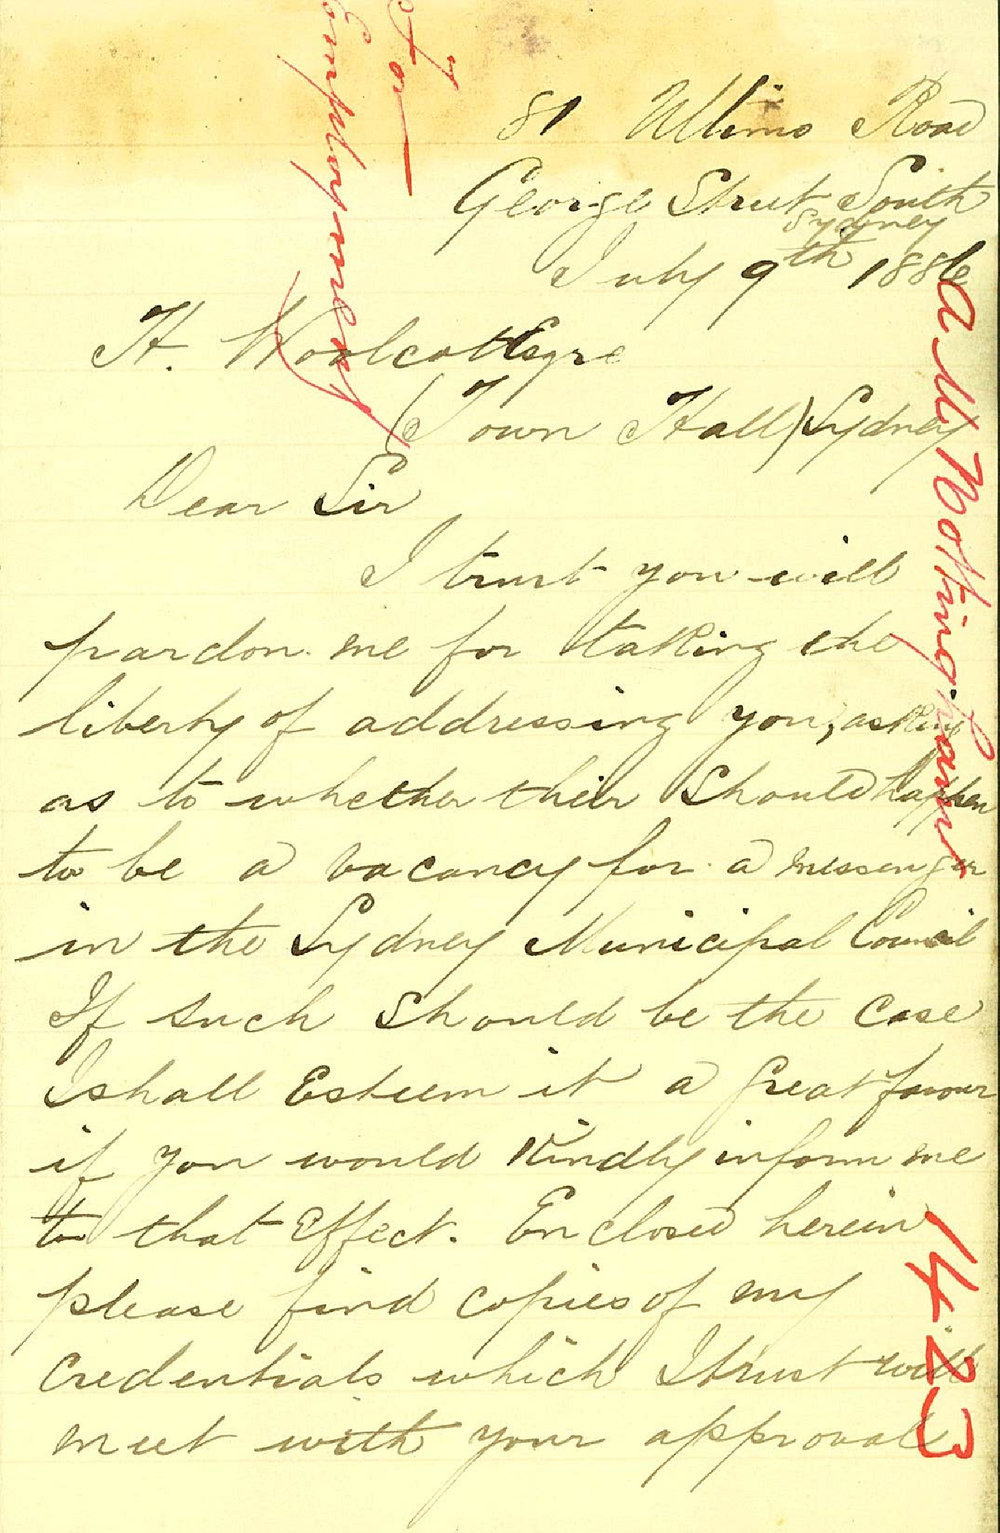 81 Ultimo Road
George Street South
Sydney
July 9th 1886
H. Woolcott Esqre
(Town Hall) Sydney
Dear Sir
I trust you will
pardon me for taking the
liberty of addressing you, asking
as to whether their should happen
to be a vacancy for a messenger
in the Sydney Municipal Council
If such should be the case
I shall Esteem it a great favour
if you would kindly inform me
to that Effect. Enclosed herein
please find copies of my
credentials which I trust will
meet with your approval
for
Employment
A M Nottingham
1423